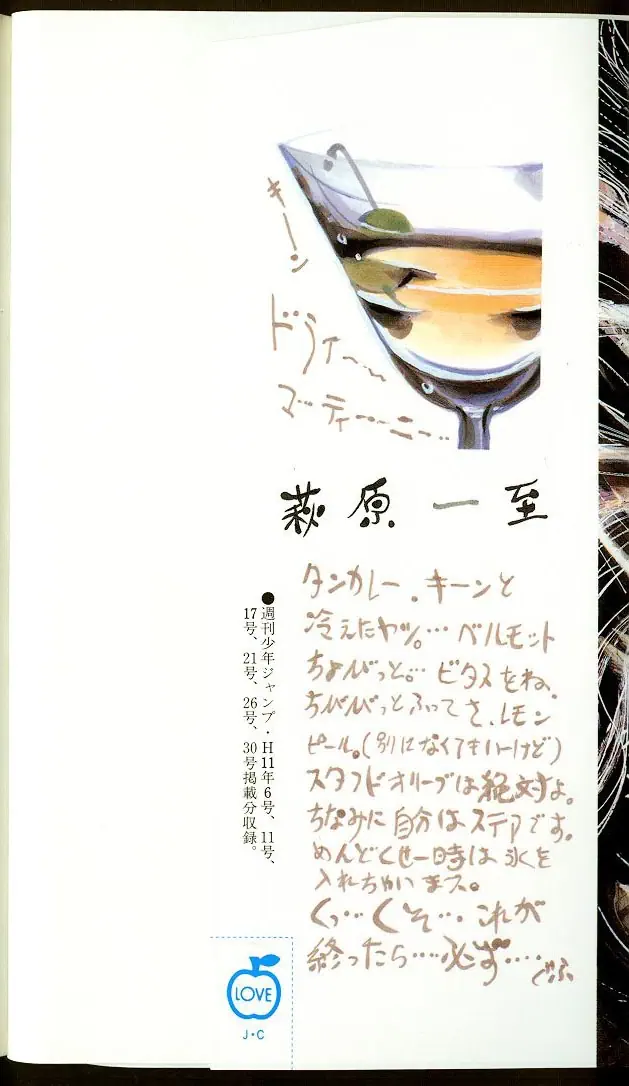 キーン
ドライ〜〜
マーティーニー‥
萩原 一至
タンカレー。キーンと
冷えたヤツ。… ベルモット
ちょびっと。… ビタスをね、
ちびびっとふってさ、レモン
ピール。(別になくてもいーけど)
スタフドオリーブは絶対よ。
ちなみに自分はステアです。
めんどくせー時は氷を
入れちゃいます。
くっ…くそ…これが
終ったら……必ず‥‥
ぐふ
●週刊少年ジャンプ・H11年6号、11号、
17号、21号、26号、30号掲載分収録。
LOVE
J・C